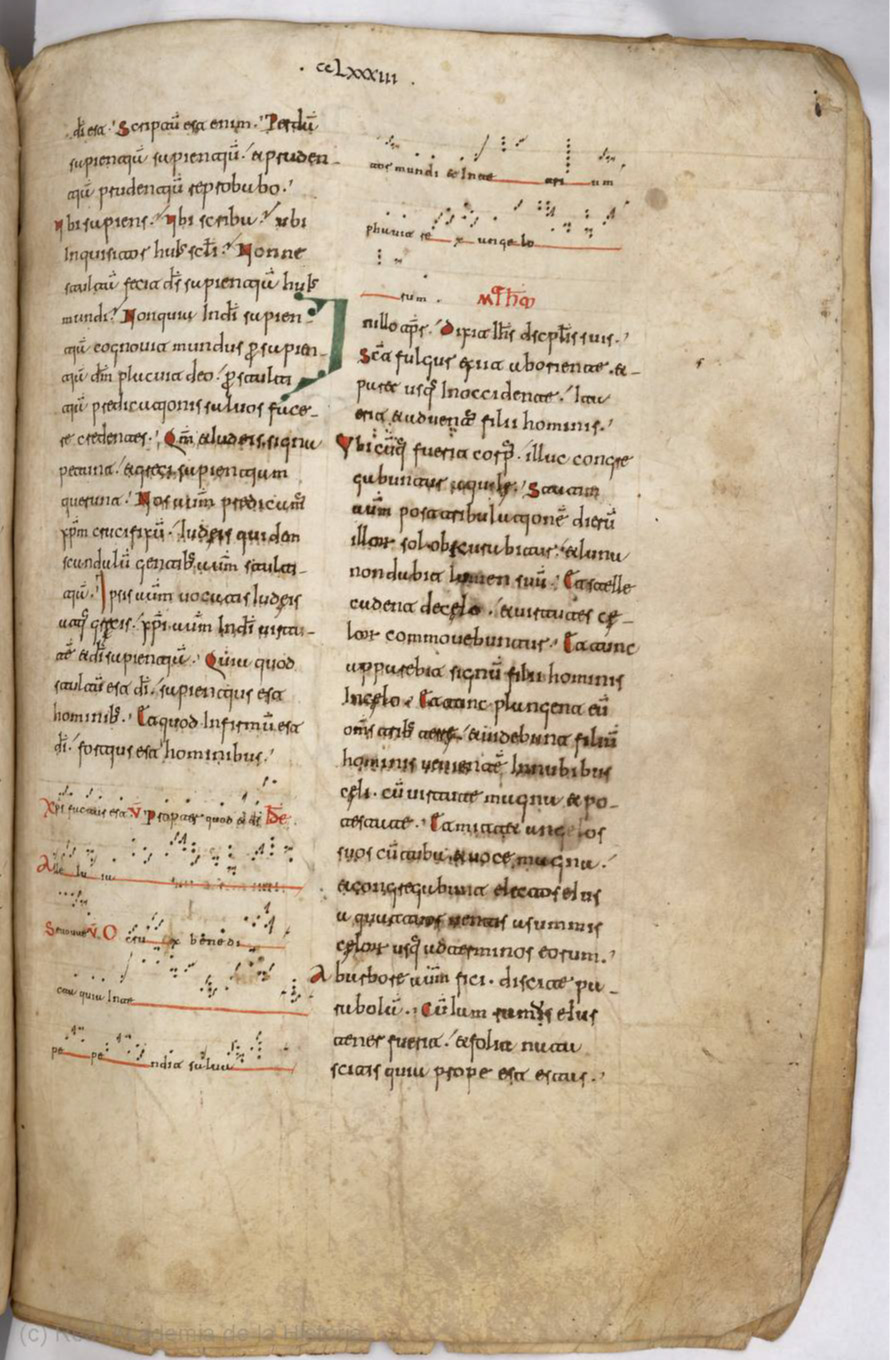 · ccLxxxiii ·
di est. Scriptū est enim. Perdā
sapientiā sapientiū. et pruden-
tiā prudentiū reprobabo.
Ubi sapiens? Ubi scriba? ubi
Inquisitor huiꝰ scłi? Nonne
stultā fecit ds̄ sapientiā huiꝰ
mundi? Nonquia In di sapien-
tia cognovit mundus ꝑ sapien-
tiā dm̄ placuit deo ꝑ stulti
tiā predicationis salvos face-
re credentes. Qm̄ et iudeis signa
petunt. et greci sapientiam
querunt. Nos autm̄ predicamꝰ
xp̄m crucifixū. Iudeis quidem
scandalū gentibꝰ autm̄ stulti-
tiā. Ipsis autm̄ vocatis Iudeis
atq; grecis. xp̄i autm̄ In di virtu-
tē et di sapientiā. Quia quod
stultū est di. sapientius est
hominibꝰ. Et quod Infirmū est
di. fortius est hominibus.
Xp̄i factus est V̄ Propter quod et ds̄
Alle lu ia
V̄ O crux bene di
cta quia In te
pe pe ndit salva
tor mundi et In te tri um
phavit re x ange lo
rum. MATHM
In illo tp̄r. Dixit Ihs̄ discipłis suis.
Sic̄ fulgur exiit ab oriente. et
paret usq; In occidente. Ita
erit adventꝰ filii hominis.
Ubicūq; fuerit corpꝰ. illuc congre
gabuntur aquile. Statim
autm̄ post tribulationē dierū
illor̄ sol obscurabitur. et luna
non dabit lumen suū. Et stelle
cadent de celo. et virtutes ce-
lor̄ commovebuntur. Et tunc
apparebit signū filii hominis
In celo. Et tunc plangent eū
oms̄ tribꝰ terre. et videbunt filiū
hominis venientē In nubibus
celi. cū virtute magna et po-
testate. Et mittet angelos
suos cū tuba et voce magna.
et congregabunt electos eius
a quattuor ventis a summis
celor̄ usq; ad terminos eorum.
Ab arbore autm̄ fici. discite pa-
rabolā. Cū Iam ramus eius
tener fuerit. et folia nata
scitis quia prope est estas.